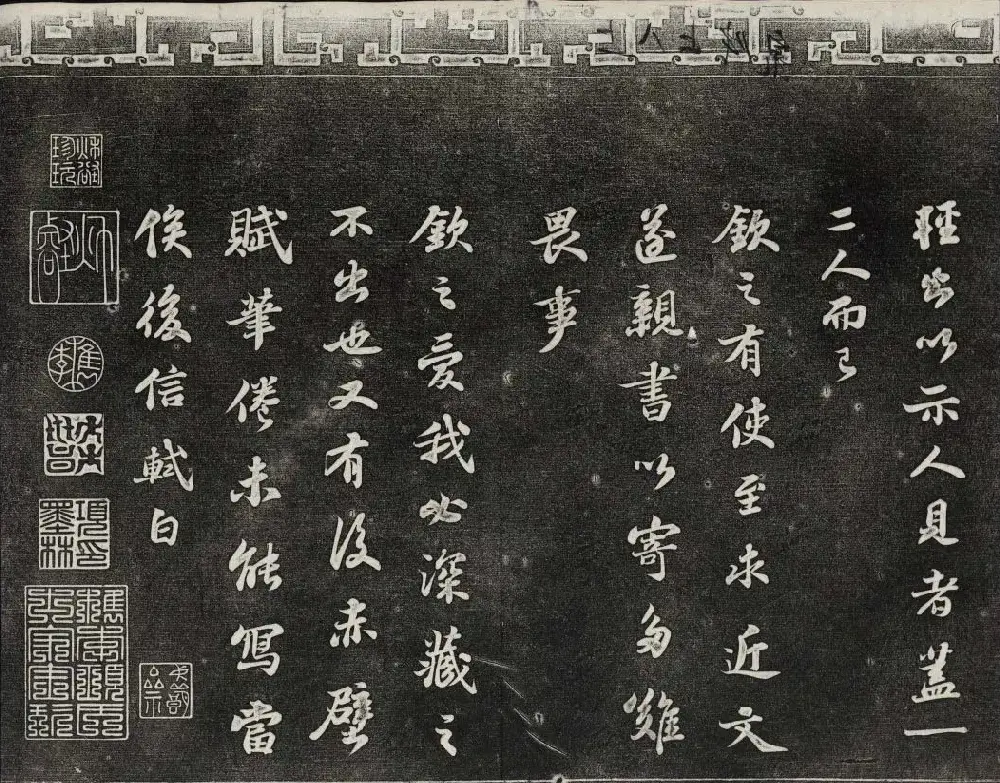 輕出以示人見者蓋一
二人而已
欽之有使至求近文
遂親書以寄多難
畏事
欽之愛我必深藏之
不出也又有後赤壁
賦筆倦未能寫當
俟後信軾白
項墨林印